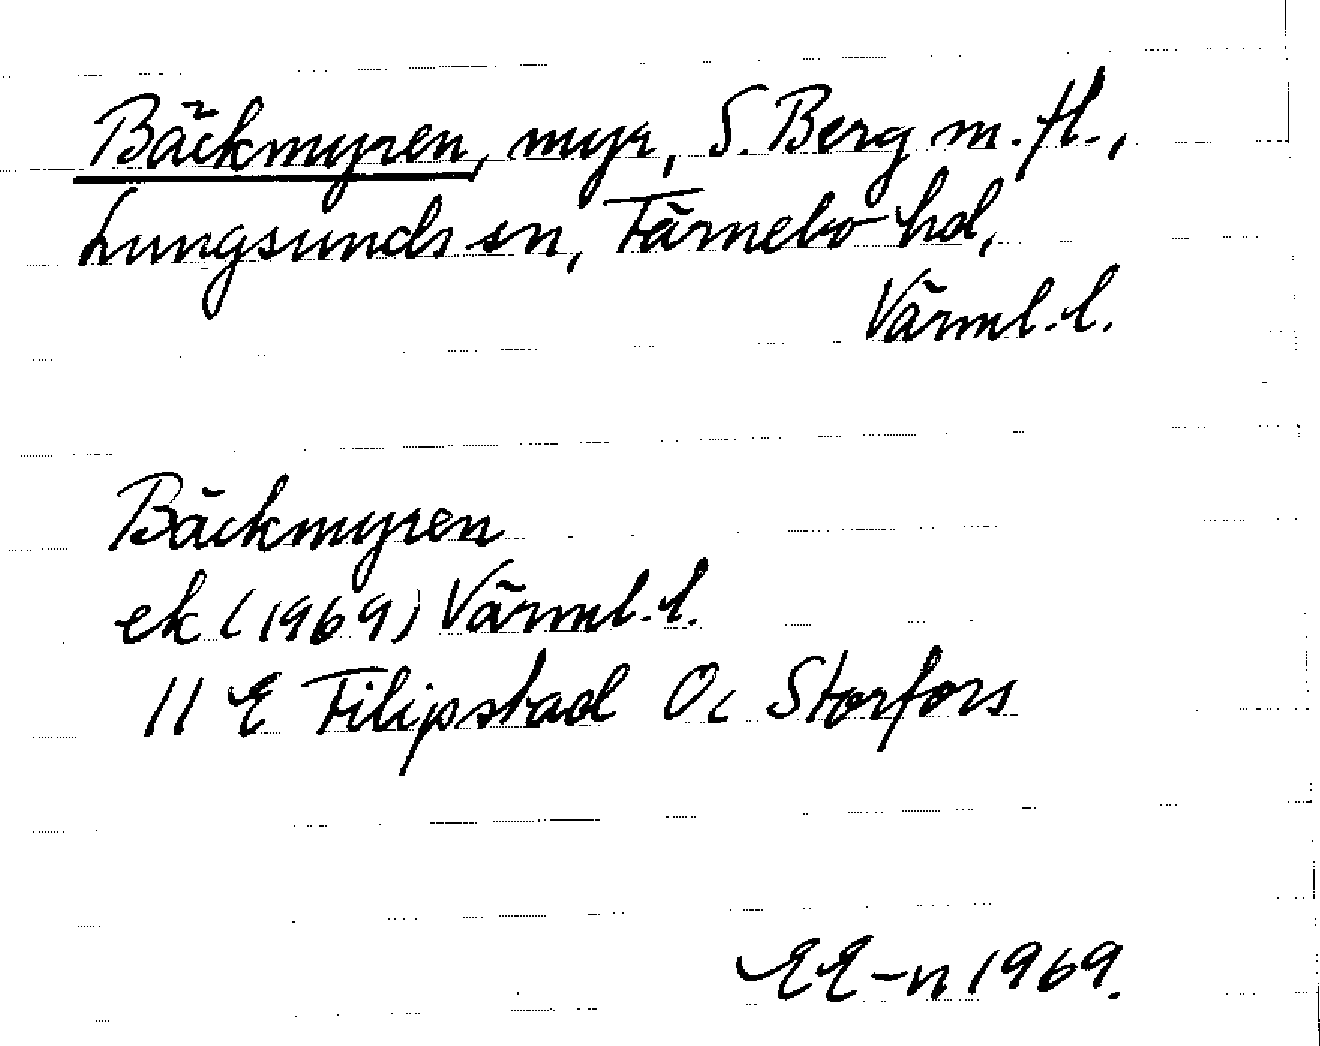 Bäckmyren, myr, S. Berg m. fl.,
Lungsunds sn, Färnebo hd,
Värml. l.
Bäckmyren
ek (1969) Värml. l.
11 E Filipstad 0c Storfors
EE-n 1969.